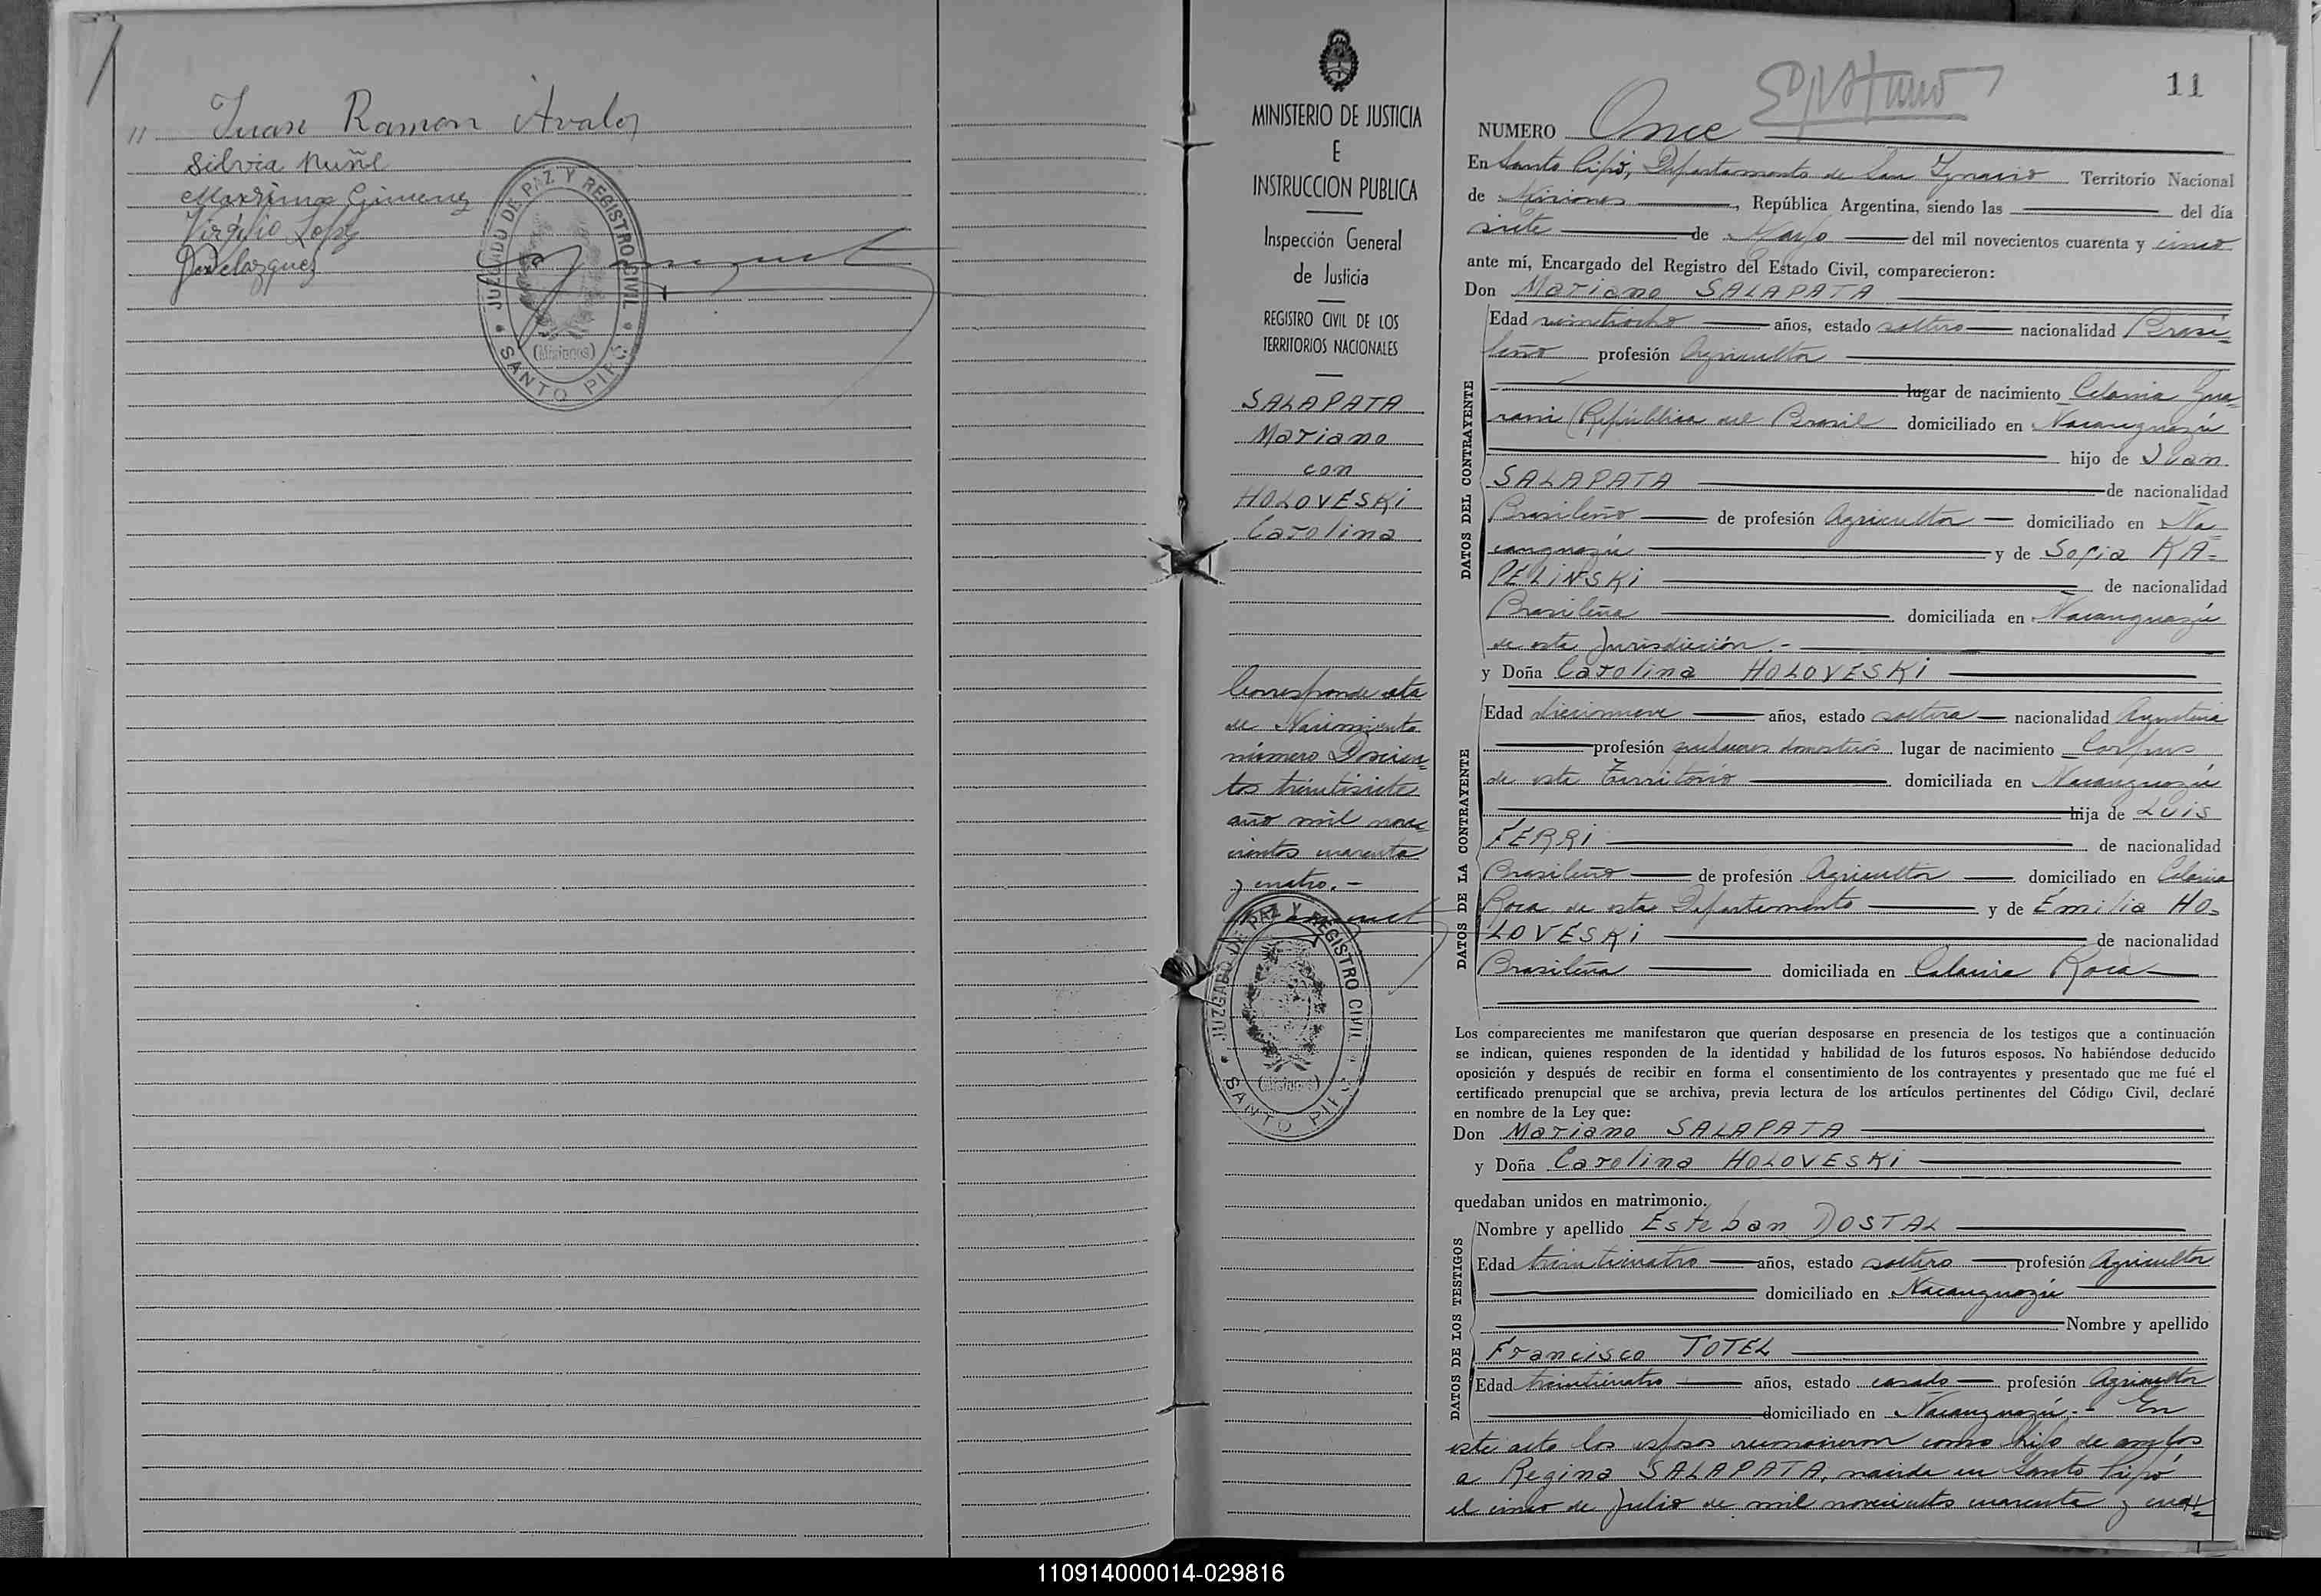 Juan Ramon Avalos
Silvia Nuñe
Maxsimo Gimenez
Virgilio Lopez
Velazquez
JUZGADO DE PAZ Y REGISTRO CIVIL
(Misiones)
SANTO PIPÓ
MINISTERIO DE JUSTICIA
E
INSTRUCCION PUBLICA
Inspección General
de Justicia
REGISTRO CIVIL DE LOS
TERRITORIOS NACIONALES
SALAPATA
Mariano
con
HOLOVESKI
Carolina
Corresponde acta
de Nacimiento
número Doscien=
tos treintisiete
año mil nove
cientos cuarenta
y cuatro.-
JUZGADO DE PAZ Y REGISTRO CIVIL
(Misiones)
SANTO PIPÓ
11
NUMERO Once
En Santo Pipó, Departamento de San Ignacio Territorio Nacional
de Misiones, República Argentina, siendo las del día
siete de Mayo del mil novecientos cuarenta y cinco
ante mí, Encargado del Registro del Estado Civil, comparecieron:
Don Mariano SALAPATA
DATOS DEL CONTRAYENTE
Edad veintiocho años, estado soltero nacionalidad Brasi=
leño profesión Agricultor
lugar de nacimiento Colonia Gua=
rani (República del Brasil domiciliado en Ñacanguazú
hijo de Juan
SALAPATA de nacionalidad
Brasileño de profesión Agricultor domiciliado en Ña
canguazú y de Sofia KA=
PELINSKI de nacionalidad
Brasileña domiciliada en Ñacanguazú
de esta Jurisdicción.-
y Doña Carolina HOLOVESKI
DATOS DE LA CONTRAYENTE
Edad diecinueve años, estado soltera nacionalidad Argentina
profesión quehaceres domésticos lugar de nacimiento Corpus
de este Territorio domiciliada en Ñacanguazú
hija de LUIS
FERRI de nacionalidad
Brasileño de profesión Agricultor domiciliado en Colonia
Roca de este Departamento y de Emilia HO=
LOVESKI de nacionalidad
Brasileña domiciliada en Colonia Roca
Los comparecientes me manifestaron que querían desposarse en presencia de los testigos que a continuación
se indican, quienes responden de la identidad y habilidad de los futuros esposos. No habiéndose deducido
oposición y después de recibir en forma el consentimiento de los contrayentes y presentado que me fué el
certificado prenupcial que se archiva, previa lectura de los artículos pertinentes del Código Civil, declaré
en nombre de la Ley que:
Don Mariano SALAPATA
y Doña Carolina HOLOVESKI
quedaban unidos en matrimonio.
DATOS DE LOS TESTIGOS
Nombre y apellido Esteban DOSTAL
Edad treinticuatro años, estado soltero profesión Agricultor
domiciliado en Ñacanguazú
Nombre y apellido
Francisco TOTEL
Edad treinticuatro años, estado casado profesión Agricultor
domiciliado en Ñacanguazú.- En
este acto los esposos reconocieron como hijo de ambos
a Regina SALAPATA, nacida en Santo Pipó
el cinco de Julio de mil novecientos cuarenta y cuat=
110914000014-029816